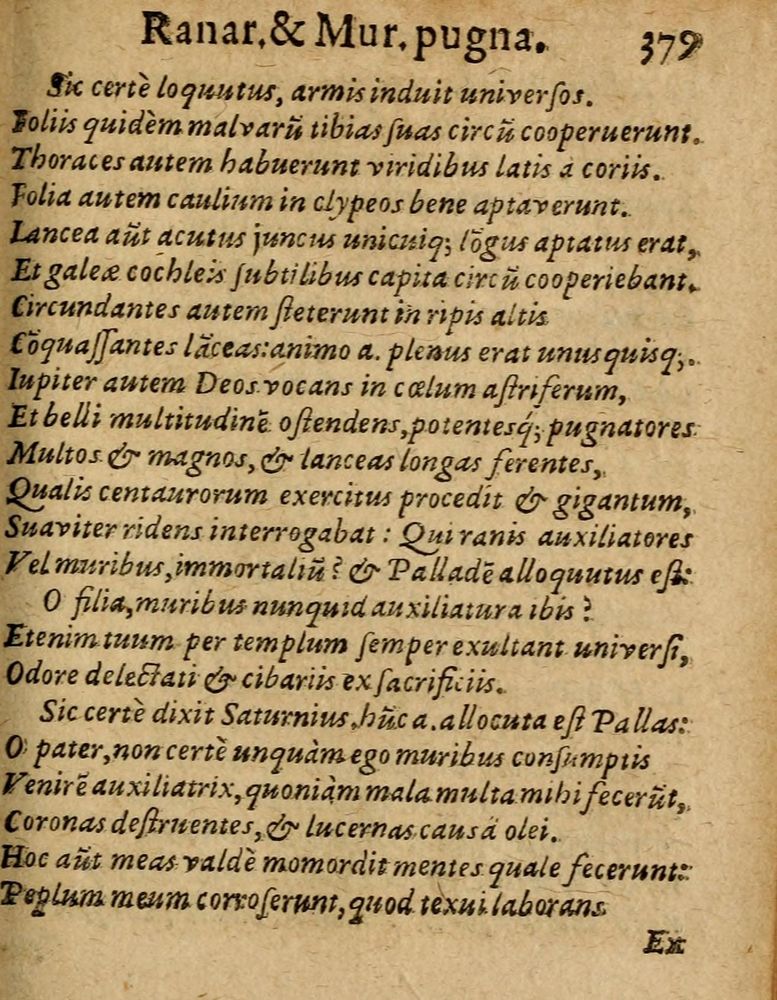 Ranar. & Mur. pugna. 379
Sic certè loquutus, armis induit universos.
Foliis quidèm malvarũ tibias suas circũ cooperuerunt.
Thoraces autem habuerunt viridibus latis à coriis.
Folia autem caulium in clypeos bene aptaverunt.
Lancea aũt acutus juncus unicuiq; lõgus aptatus erat,
Et galeæ cochleis subtilibus capita circũ cooperiebant.
Circundantes autem steterunt in ripis altis
Cõquassantes lãceas: animo a. plenus erat unusquisq;.
Iupiter autem Deos vocans in cœlum astriferum,
Et belli multitudinẽ ostendens, potentesq́; pugnatores
Multos & magnos, & lanceas longas ferentes,
Qualis centaurorum exercitus procedit & gigantum,
Suaviter ridens interrogabat: Qui ranis auxiliatores
Vel muribus, immortaliũ? & Palladẽ alloquutus est:
O filia, muribus nunquid auxiliatura ibis?
Etenim tuum per templum semper exultant universi,
Odore delectati & cibariis ex sacrificiis.
Sic certè dixit Saturnius, hũc a. allocuta est Pallas:
O pater, non certè unquàm ego muribus consumptis
Venirẽ auxiliatrix, quoniàm mala multa mihi fecerũt,
Coronas destruentes, & lucernas causâ olei.
Hoc aũt meas valdè momordit mentes quale fecerunt:
Peplum meum corroserunt, quod texui laborans
Ex